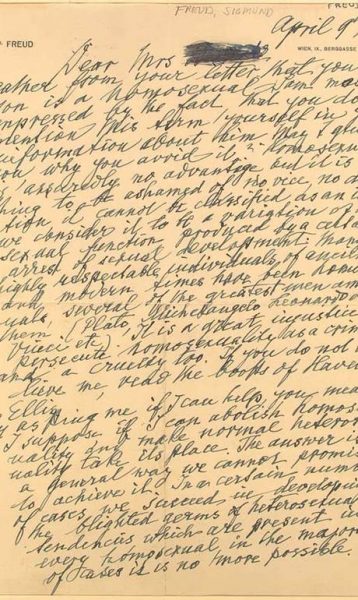 FREUD, SIGMUND
FREUD
April 9
. FREUD
WIEN, IX., BERGGASSE
Dear Mrs
eather from your letter that you
on is a homosexual. I am mo
mpressed by the fact that you d
ention this term yourself in y
information about him. May I q
ou why you avoid it? Homosexua
s assuredly no advantage but it is
thing to be ashamed of, no vice, no d
tion it cannot be classified as an i
we consider it to be a variation of t
sexual function produced by a certa
arrest of sexual development. Man
highly respectable individuals of ancie
and modern times have been homo
uals, several of the greatest men am
them. (Plato, Michelangelo, Leonardo
Vinci, etc). It is a great injustice
persecute homosexuality as a crim
and a cruelty too. If you do not
lieve me, read the books of Havel
Ellis.
y asking me if I can help you mea
I suppose if I can abolish homos
uality and make normal heteros
uality take its place. The answer i
a general way we cannot promis
to achieve it. In a certain numb
of cases we succeed in developin
the blighted germs of heterosexual
tendencies which are present in
every homosexual, in the major
of cases it is no more possible